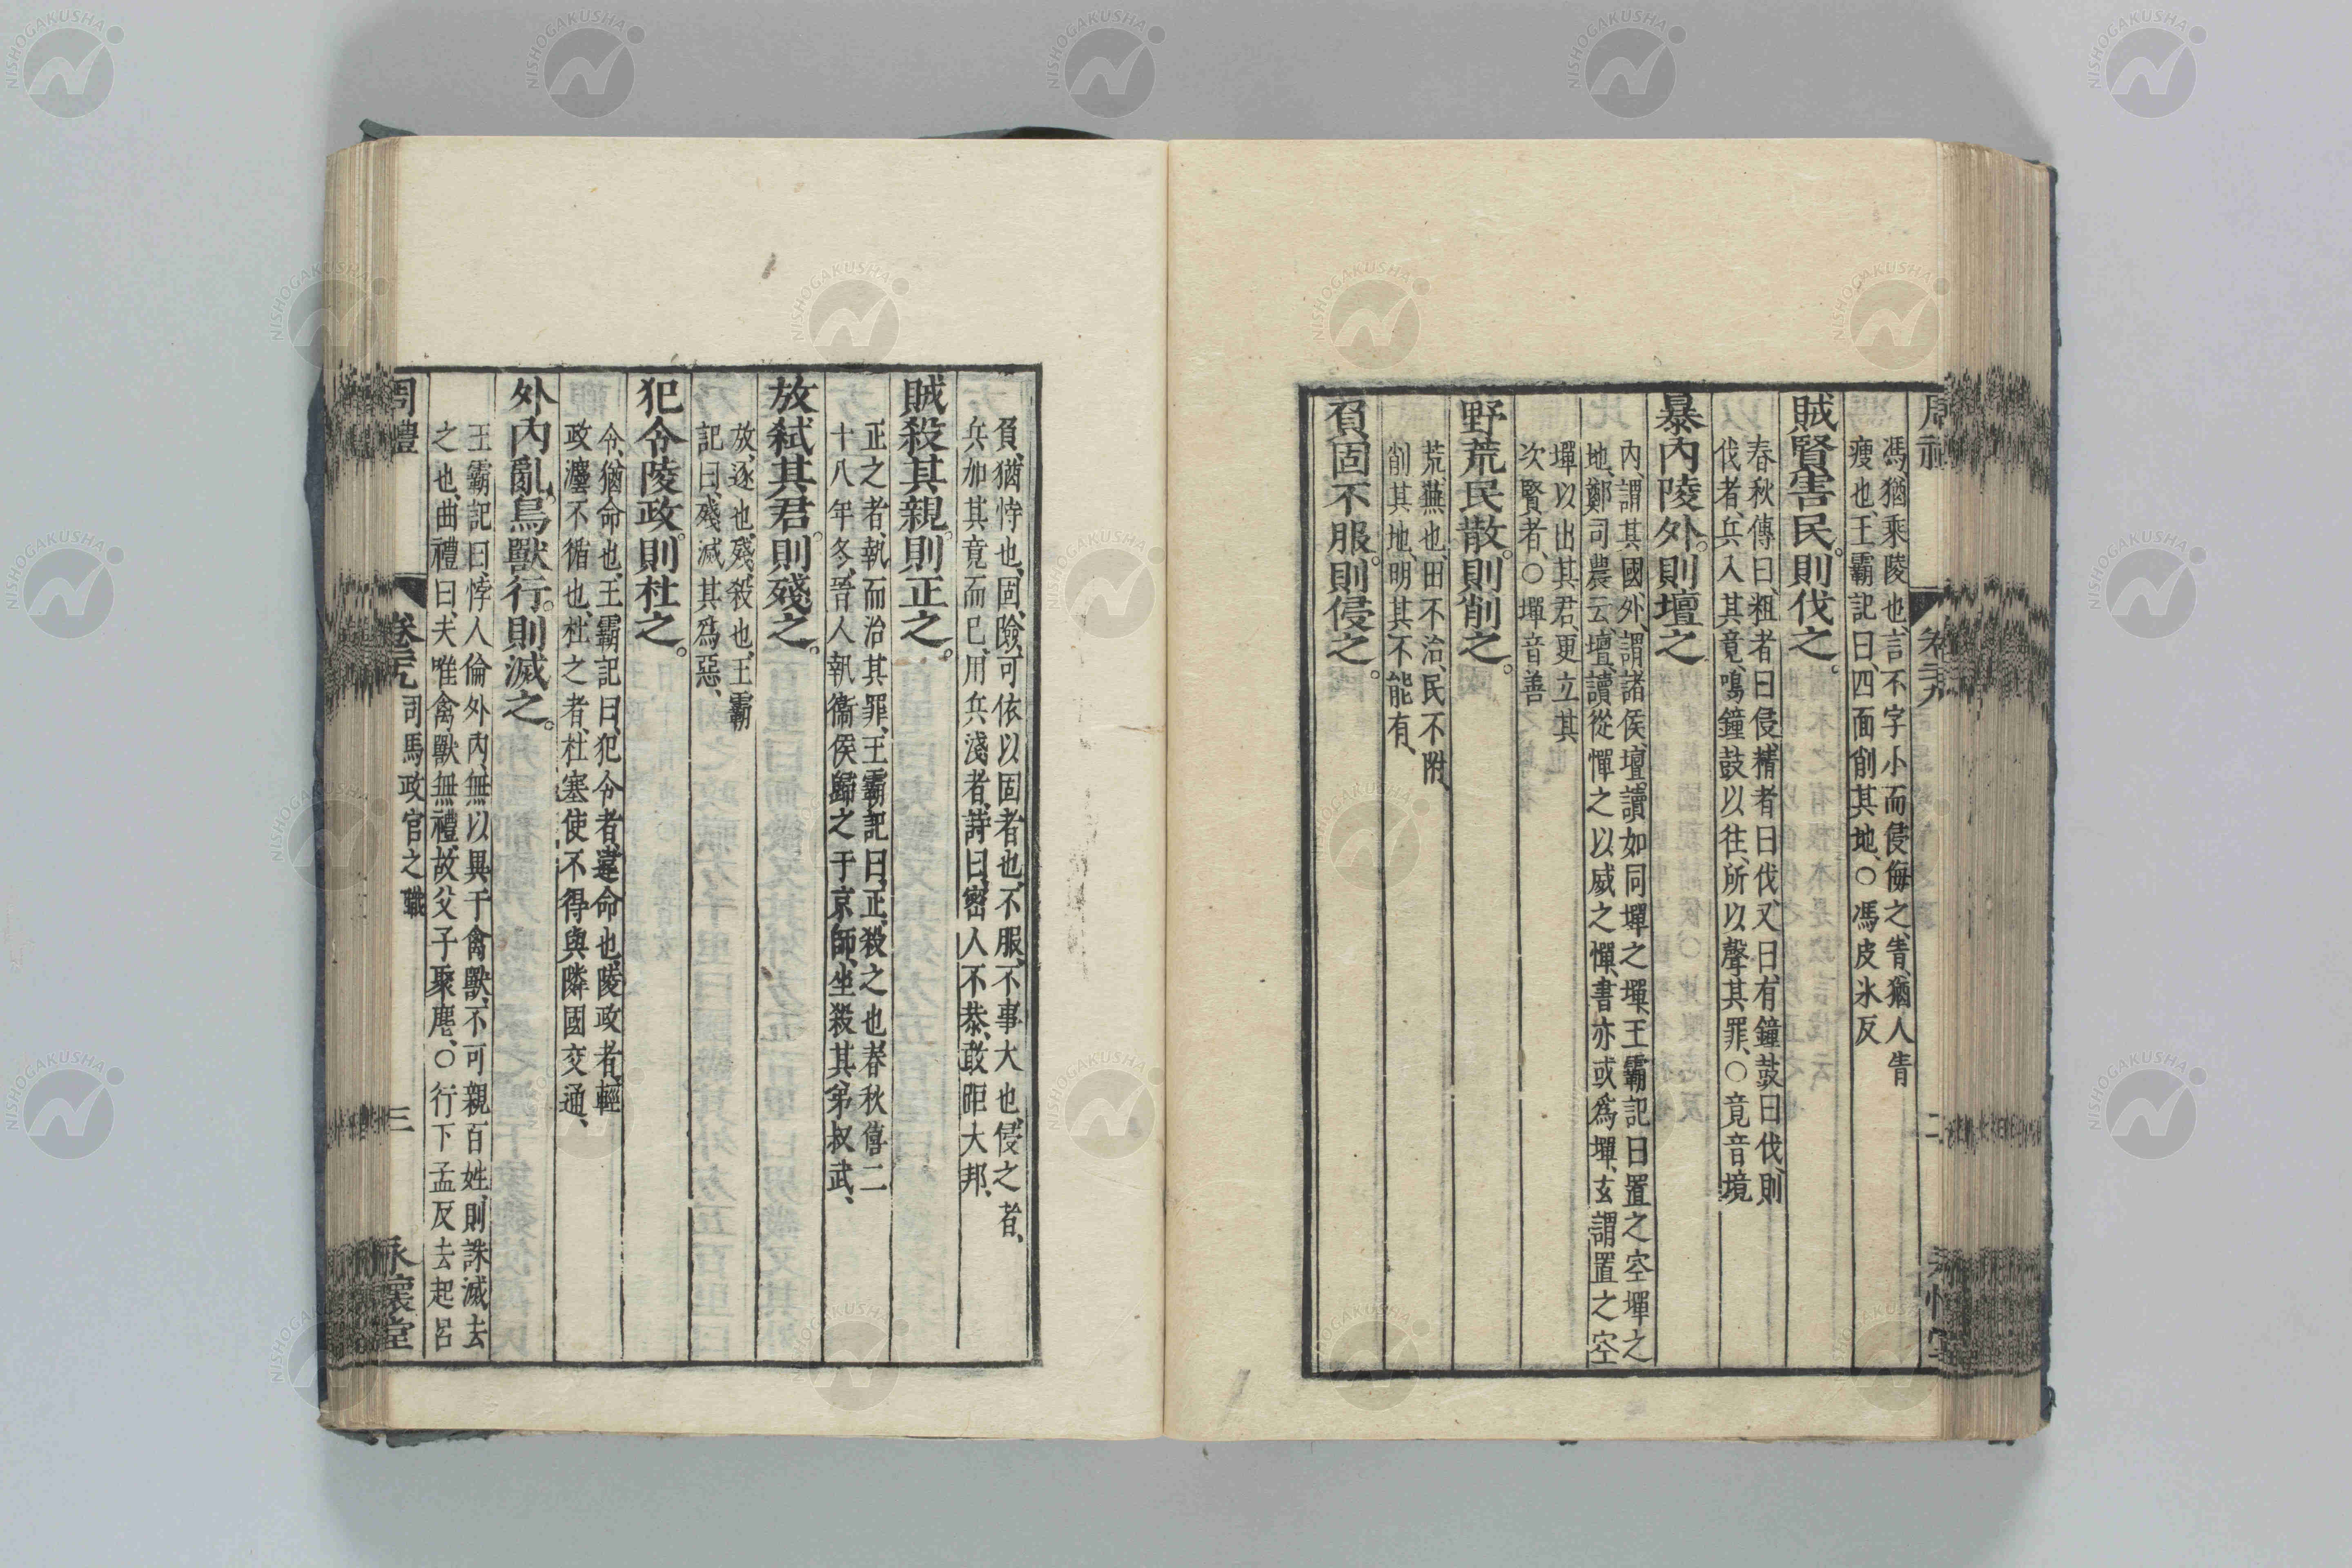 馮、猶乘陵也、言不字小而侵侮之、眚、猶人眚
瘦也、王霸記曰、四面削其地、○馮皮氷反
賊賢害民。則伐之。
春秋傳曰、粗者曰侵、精者曰伐、又曰、有鐘鼓曰伐、則
伐者、兵入其竟、鳴鐘鼓以往、所以聲其罪、○竟音境
暴內陵外。則壇之
內、謂其國、外、謂諸侯、壇、讀如同墠之墠、王霸記曰置之空墠之
地、鄭司農云、壇、讀從憚之以威之憚、書亦或爲墠、玄謂置之空
墠以出其君、更立其
次賢者、○墠音善
野荒民散。則削之。
荒、蕪也、田不治、民不附、
削其地、明其不能有、
負固不服。則侵之。
卷二九
負、猶恃也、固、險、可依以固者也、不服、不事大也、侵之者、
兵加其竟而已、用兵淺者、詩曰、密人不恭、敢距大邦、
賊殺其親。則正之。
正之者、執而治其罪、王霸記曰、正、殺之也、春秋僖二
十八年冬、晉人執衞侯歸之于京師、坐殺其弟叔武、
放弑其君。則殘之。
放、逐也、殘、殺也、王霸
記曰、殘滅其爲惡、
犯令陵政。則杜之。
令、猶命也、王霸記曰、犯令者、違命也、陵政者、輕
政灋不循也、杜之者、杜塞使不得與隣國交通、
外內亂。鳥獸行。則滅之。
王霸記曰、悖人倫外內、無以異于禽獸、不可親百姓、則誅滅去
之也、曲禮曰、夫唯禽獸無禮、故父子聚麀、○行下孟反去起呂
周禮 卷二九 司馬政官之職 三 永懷堂